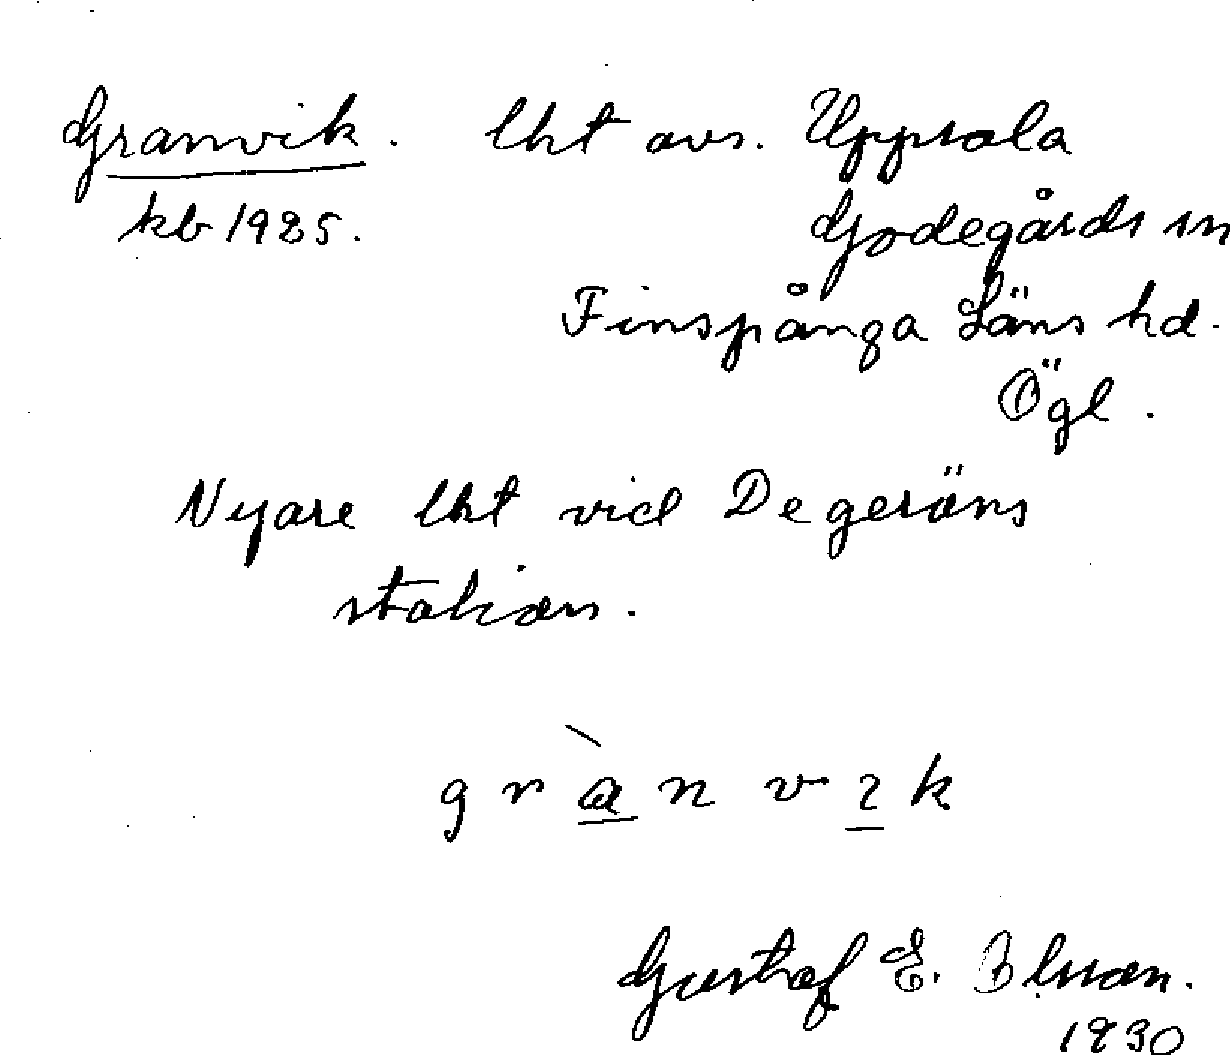 Granvik. lht avs. Uppsala
kb 1925. Godegårds sn
Finspånga Läns hd.
Ögl.
Nyare lht vid Degeröns
station.
grànvık
Gustaf E.
1930